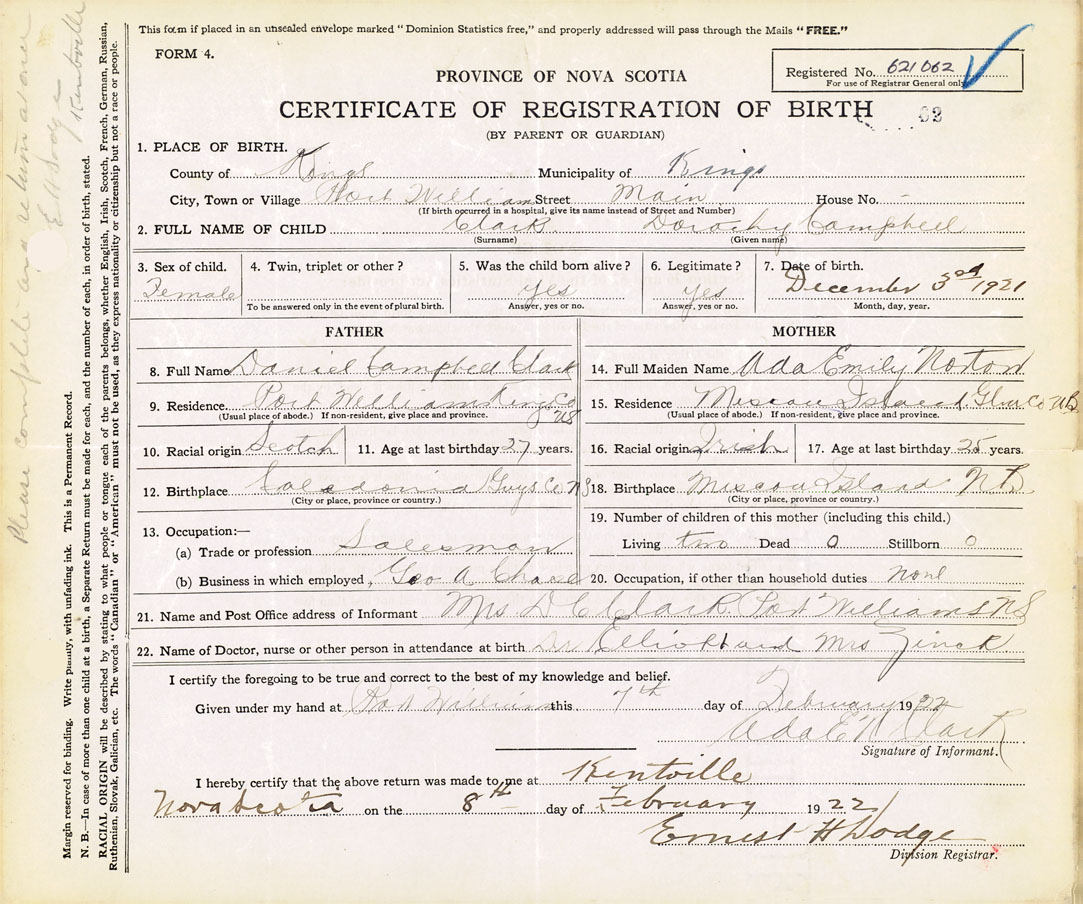 This form if placed in an unsealed envelope marked "Dominion Statistics free," and properly addressed will pass through the Mails "FREE."
FORM 4.
Registered No. 621062
For use of Registrar General only
PROVINCE OF NOVA SCOTIA
CERTIFICATE OF REGISTRATION OF BIRTH 62
(BY PARENT OR GUARDIAN)
1. PLACE OF BIRTH.
County of Kings Municipality of Kings
City, Town or Village Port Williams Street Main House No. -
(If birth occurred in a hospital, give its name instead of Street and Number)
2. FULL NAME OF CHILD Clark Dorothy Campbell
(Surname) (Given name)
3. Sex of child. 4. Twin, triplet or other? 5. Was the child born alive? 6. Legitimate? 7. Date of birth.
Female yes yes December 3rd 1921
To be answered only in the event of plural birth. Answer, yes or no. Answer, yes or no. Month, day, year.
FATHER MOTHER
8. Full Name Daniel Campbell Clark 14. Full Maiden Name Ada Emily Norton
9. Residence Port Williams Kings Co NS 15. Residence Miscou Island Glou Co NB
(Usual place of abode.) If non-resident, give place and province. (Usual place of abode.) If non-resident, give place and province.
10. Racial origin Scotch 11. Age at last birthday 27 years. 16. Racial origin Irish 17. Age at last birthday 25 years.
12. Birthplace Caledonia Guys Co NS 18. Birthplace Miscou Island NB
(City or place, province or country.) (City or place, province or country.)
19. Number of children of this mother (including this child.)
13. Occupation:—
(a) Trade or profession Salesman Living two Dead 0 Stillborn 0
(b) Business in which employed, Geo A Chase 20. Occupation, if other than household duties none
21. Name and Post Office address of Informant Mrs D C Clark Port Williams NS
22. Name of Doctor, nurse or other person in attendance at birth Dr Elliott and Mrs Zinck
I certify the foregoing to be true and correct to the best of my knowledge and belief.
Given under my hand at Port Williams this 7th day of February 1922
Ada E N Clark
Signature of Informant.
I hereby certify that the above return was made to me at Kentville
Nova Scotia on the 8th day of February 1922
Ernest H Dodge
Division Registrar.
Margin reserved for binding. Write plainly, with unfading ink. This is a Permanent Record.
N. B.—In case of more than one child at a birth, a Separate Return must be made for each, and the number of each, in order of birth, stated.
RACIAL ORIGIN will be described by stating to what people or tongue each of the parents belongs, whether English, Irish, Scotch, French, German, Russian,
Ruthenian, Slovak, Galician, etc. The words "Canadian" or "American" must not be used, as they express nationality or citizenship but not a race or people.
Please complete and return at once
E H Dodge
Kentville